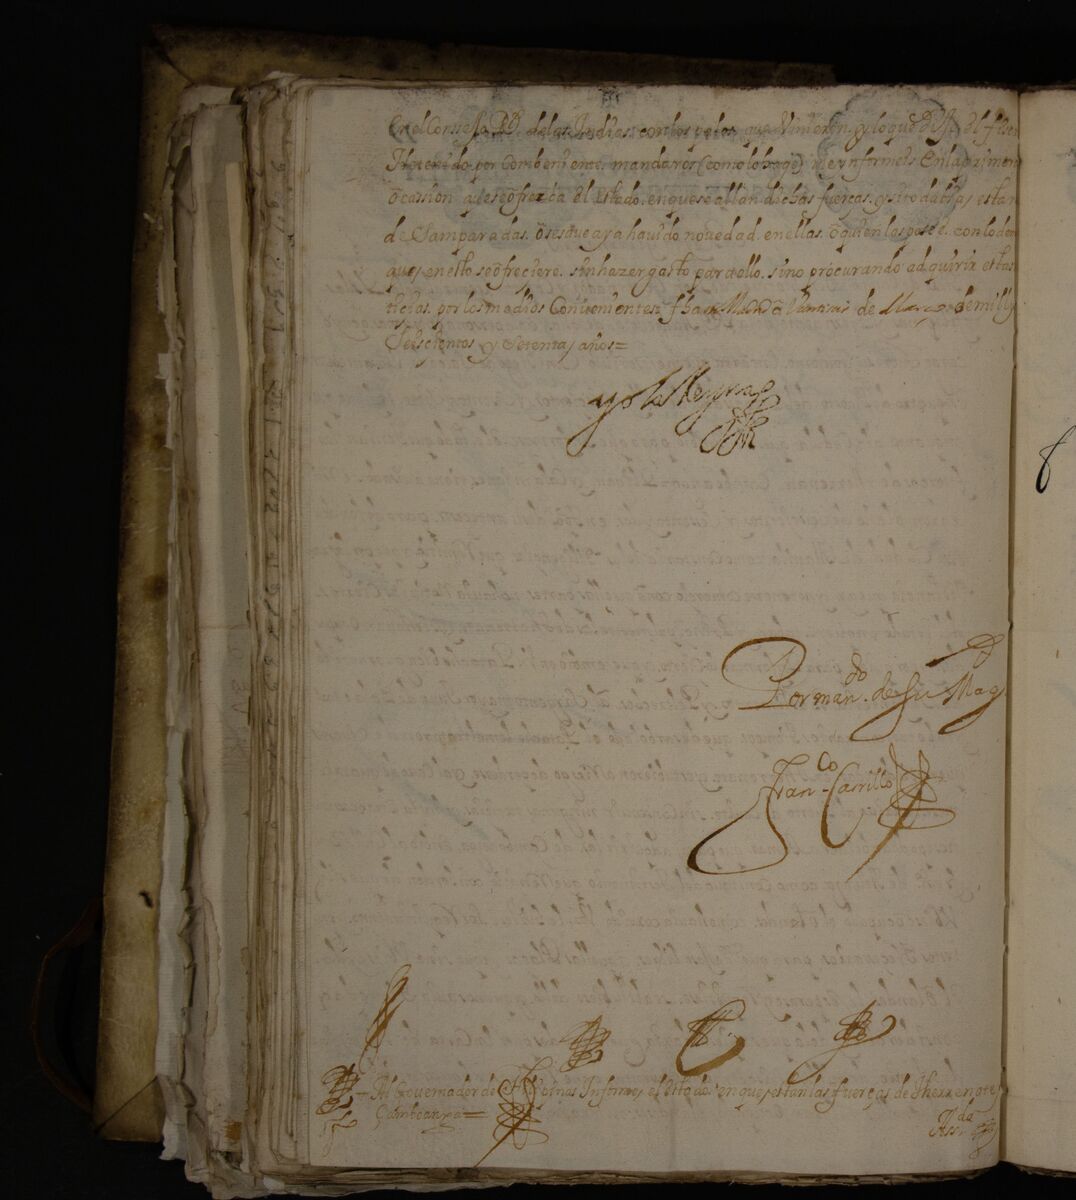 en el Conssejo Rl. de las Indias, con los papeles que Vinieron, y lo que Dijo el fiscal
Ha parecido por Combeniente, mandaros (como lo hago) me ynformeis en la primera
ocassion que se ofrezca el Estado en que se allan dichas fuerças, y si todabia estan
desamparadas, o si es que aya hauido nouedad en ellas, o quien las posee, con lo demas
que en esto se ofreciere, sin hazer gasto para ello, sino procurando adquirir estas
por los medios Convenientes, fha en Madrid a de Março de mill y
seiscientos y setenta años=
yo la Reyna
Por mando. de su Magd
Franco. Carrillo
Al Governador de Informe el estado en que estan las fuerças de Therrenate
Assda